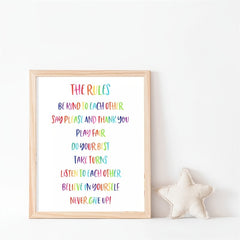 THE RULES
BE KIND TO EACH OTHER
SAY PLEASE AND THANK YOU
PLAY FAIR
DO YOUR BEST
TAKE TURNS
LISTEN TO EACH OTHER
BELIEVE IN YOURSELF
NEVER GIVE UP!